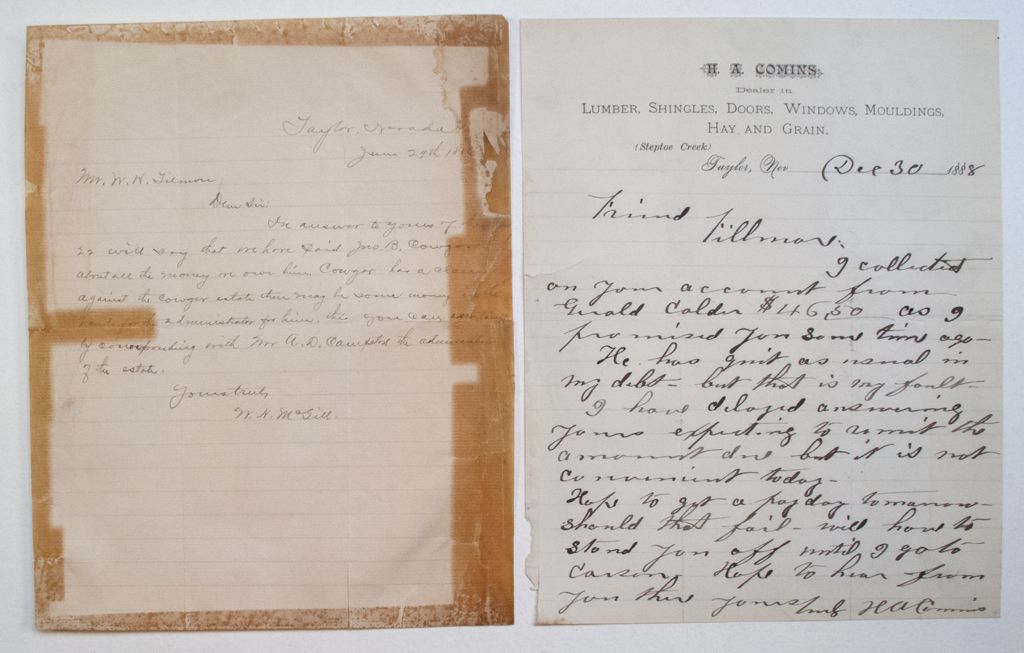 Taylor, Nevada
June 29th 18
Mr. W. H. Tilmon
Dear Sir:
In answer to yours of
22 will say that we have paid Jno. B. Cowger
about all the money we owe him Cowger has a claim
against the Cowger estate there may be some money
the administrator for him, this you can
by corresponding with Mr A. D. Campbell the administrator
of the estate.
Yours truly
W. N. McGill.
H. A. COMINS
Dealer in
LUMBER, SHINGLES, DOORS, WINDOWS, MOULDINGS,
HAY AND GRAIN.
(Steptoe Creek)
Taylor, Nev Dec 30 1888
Friend Tillman:
I collected
on your account from
Gerald Calder $46,50 as I
promised you some time ago–
He has quit as usual in
my debt – but that is my fault–
I have delayed answering
yours expecting to remit the
amount due but it is not
convenient today–
Hope to get a pay day tomorrow–
should that fail – will have to
stand you off until I go to
Carson, Hope to hear from
you there yours truly H A Comins